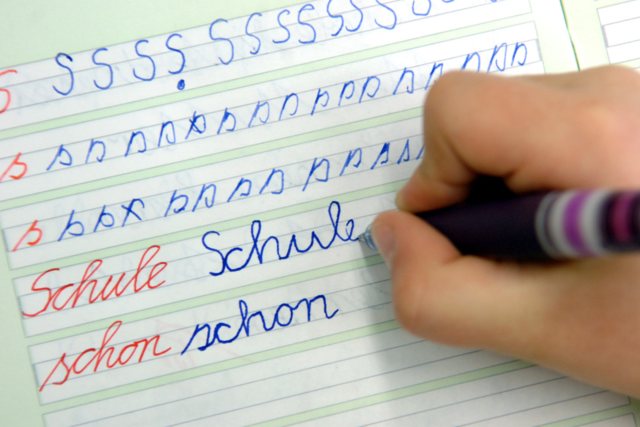 S S S S S S S S S S S S S
s s s s s s s s s s s s s s s s
s s s s s s s s s s s s
Schule Schule
schon schon